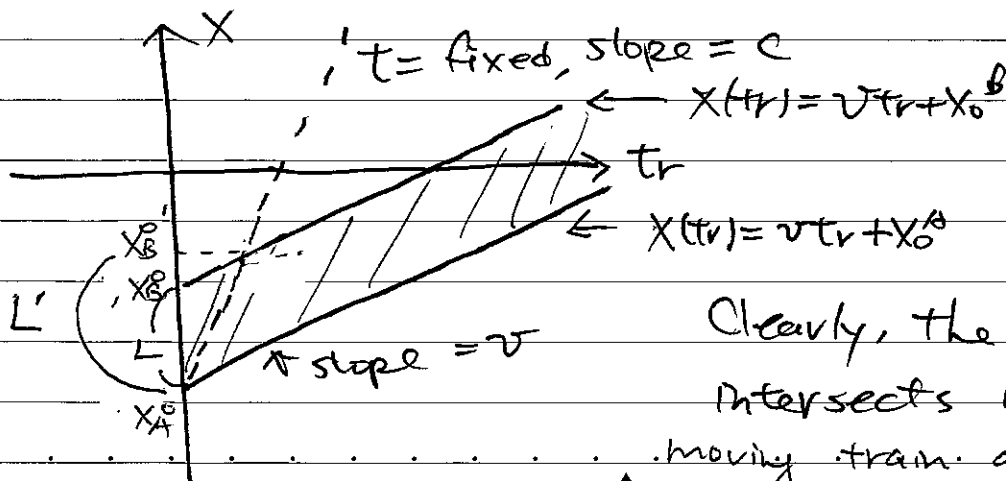 X
t = fixed, slope = c
← X(tr) = vtr + X₀ᴮ
tr
X_B⁰'
X_B⁰
← X(tr) = vtr + X₀ᴬ
L'
L
slope = v
X_A⁰
Clearly, the
intersects
moving train